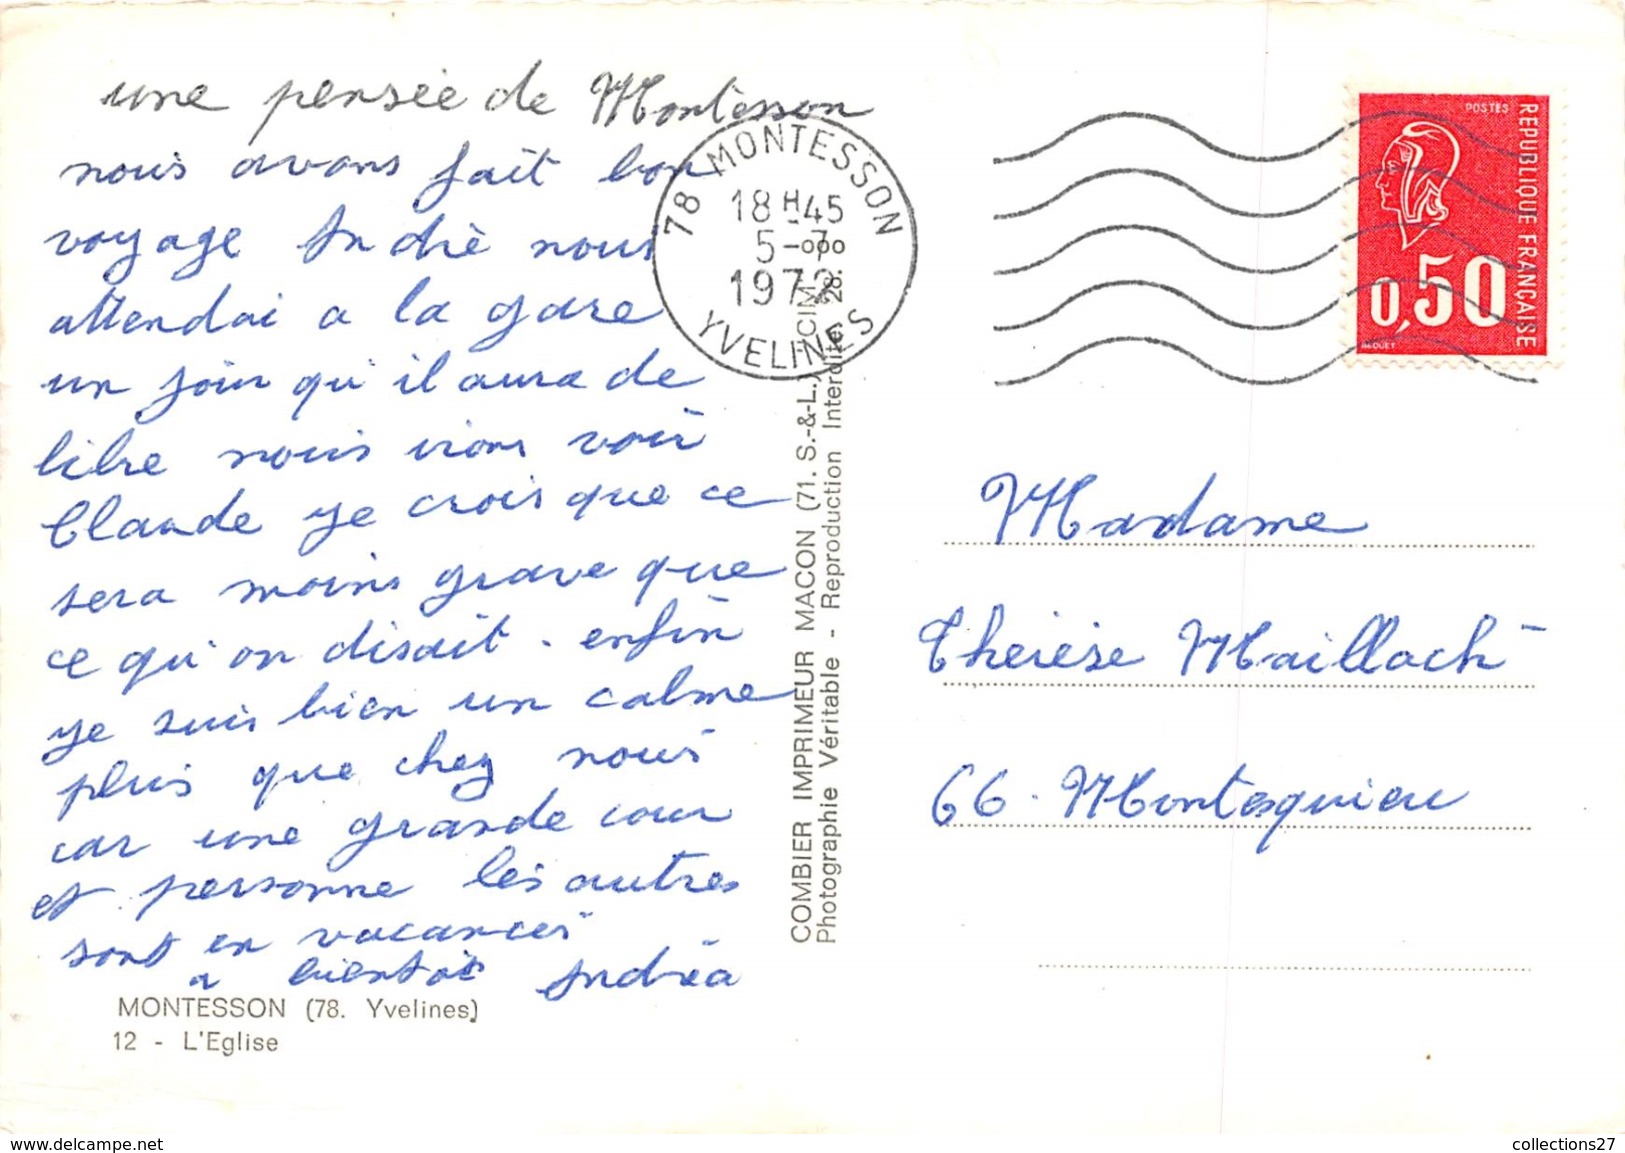 une pensée de Montesson
nous avons fait bon
voyage André nous
attendai a la gare
un jour qu'il aura de
libre nous irons voir
Claude je crois que ce
sera moins grave que
ce qu'on disait. enfin
je suis bien un calme
plus que chez nous
car une grande cour
et personne les autres
sont en vacances
a bientôt Andréa
MONTESSON (78. Yvelines)
12 - L'Eglise
78 MONTESSON
18H45
5-7
1972
YVELINES
COMBIER IMPRIMEUR MACON (71. S.-&-L.) CIM
Photographie Véritable - Reproduction Interdite 28.
POSTES
REPUBLIQUE FRANÇAISE
0,50
BEQUET
Madame
Thérèse Maillach
66. Montesquieu
www.delcampe.net
collections27